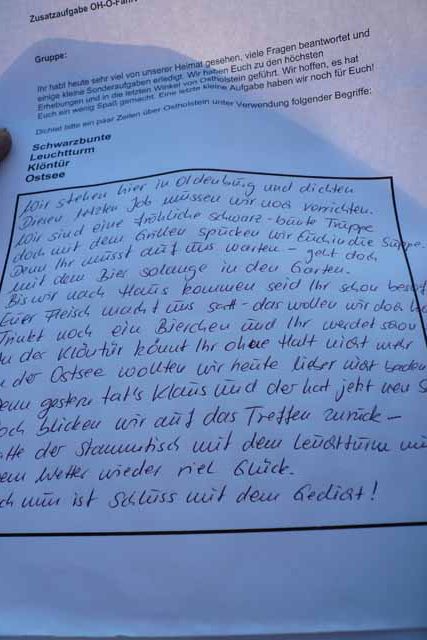 Zusatzaufgabe OH-O-Fahrt
Gruppe:
Ihr habt heute sehr viel von unserer Heimat gesehen, viele Fragen beantwortet und
einige kleine Sonderaufgaben erledigt. Wir haben Euch zu den höchsten
Erhebungen und in die letzten Winkel von Ostholstein geführt. Wir hoffen, es hat
Euch ein wenig Spaß gemacht. Eine letzte kleine Aufgabe haben wir noch für Euch!
Dichtet bitte ein paar Zeilen über Ostholstein unter Verwendung folgender Begriffe:
Schwarzbunte
Leuchtturm
Klöntür
Ostsee
Wir stehen hier in Oldenburg und dichten
Diesen letzten Job müssen wir noch verrichten.
Wir sind eine fröhliche schwarz-bunte Truppe
doch mit dem Grillen spucken wir Euch in die Suppe.
Denn Ihr müsst auf uns warten - geht doch
mit dem Bier solange in den Garten.
Bis wir nach Haus kommen seid Ihr schon
Euer Fleisch macht uns satt - das wollen wir doch
Trinkt noch ein Bierchen und Ihr werdet schon
der Klöntür könnt Ihr ohne Halt nicht mehr
der Ostsee wollten wir heute lieber nicht baden
gestern tat's Klaus und der hat jetzt
blicken wir auf das Treffen zurück -
der Stammtisch mit dem Leuchtturm
Wetter wieder viel Glück.
nun ist Schluss mit dem Gedicht!